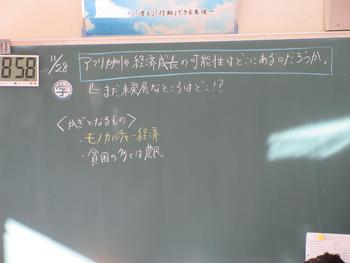 「考え」「行動」できる生徒
8:58
11/28
アフリカ州の経済成長の可能性はどこにあるのだろうか。
学
まだ未発展なところはどこ!?
<かぎとなるもの>
・モノカルチャー経済
・貧困の多くは農民